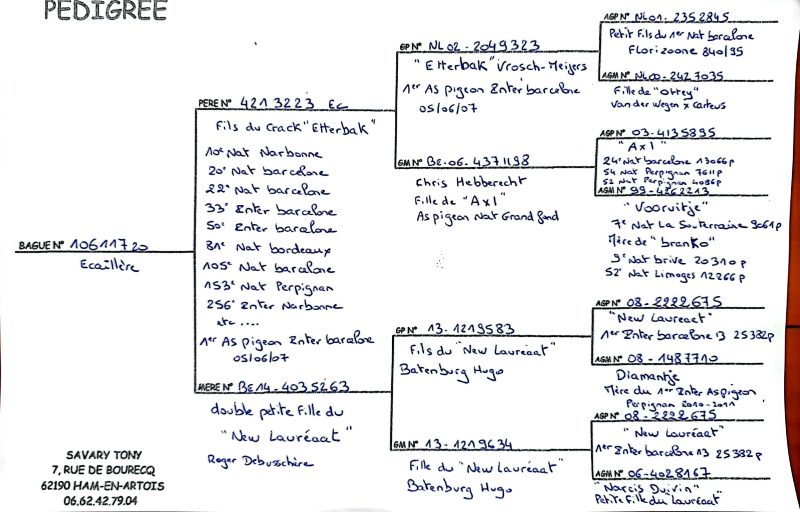 PEDIGREE
BAGUE N° 10611720
Ecaillère
PERE N° 4213223 Ec
Fils du Crack "Etterbak"
10e Nat Narbonne
20e Nat barcelone
22e Nat barcelone
33e Inter barcelone
50e Inter barcelone
81e Nat bordeaux
105e Nat barcelone
153e Nat Perpignan
256e Inter Narbonne
etc ....
1er As pigeon Inter barcelone
05/06/07
MERE N° BE14-4035263
double petite fille du
"New Lauréaat"
Roger Debusschère
GP N° NL02-2049323
"Etterbak" Vrosch-Meijers
1er As pigeon Inter barcelone
05/06/07
GM N° BE-06-4371198
Chris Hebberecht
Fille de "Axl"
As pigeon Nat Grand fond
GP N° 13-1219583
Fils du "New Lauréaat"
Batenburg Hugo
GM N° 13-1219634
Fille du "New Lauréaat"
Batenburg Hugo
AGP N° NL01-2352845
Petit Fils du 1er Nat barcelone
Florizoone 840/95
AGM N° NL00-2427035
Fille de "Ottey"
Van der Wegen x Carteus
AGP N° 03-4135895
"Axl"
24e Nat barcelone 13066p
54 Nat Perpignan 7611p
52 Nat Perpignan 4096p
AGM N° 99-4262213
"Vooruitje"
7e Nat La Souterraine 9061p
Mère de "branko"
9e Nat brive 20310p
52e Nat Limoges 12266p
AGP N° 08-2222675
"New Lauréaat"
1er Inter barcelone 13 25382p
AGM N° 08-1487710
Diamantje
Mère du 1er Inter Aspigeon
Perpignan 2010-2011
AGP N° 08-2222675
"New Lauréaat"
1er Inter barcelone 13 25382p
AGM N° 06-4028167
"Narcis Duivin"
Petite fille du "Lauréaat"
SAVARY TONY
7, RUE DE BOURECQ
62190 HAM-EN-ARTOIS
06.62.42.79.04